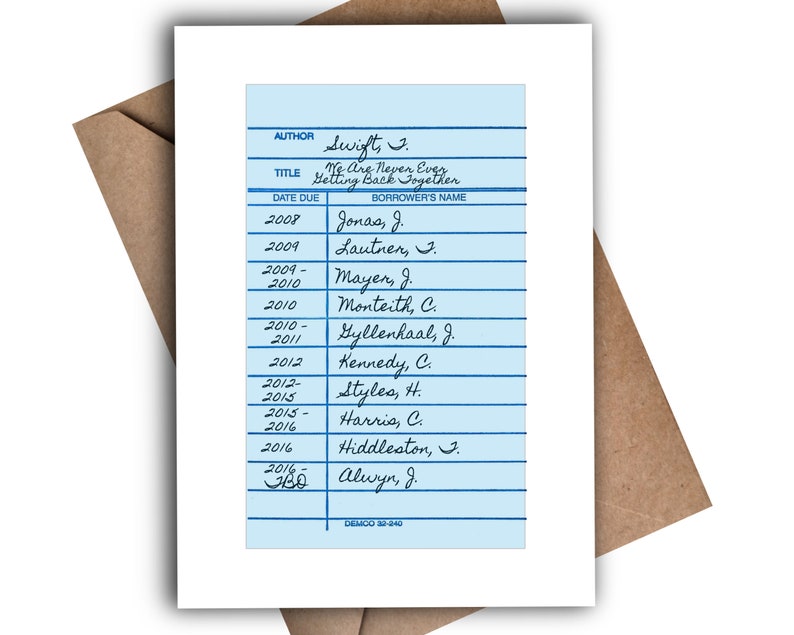 AUTHOR Swift, T.
TITLE We Are Never Ever
Getting Back Together
DATE DUE BORROWER'S NAME
2008 Jonas, J.
2009 Lautner, T.
2009 -
2010 Mayer, J.
2010 Monteith, C.
2010 -
2011 Gyllenhaal, J.
2012 Kennedy, C.
2012-
2015 Styles, H.
2015 -
2016 Harris, C.
2016 Hiddleston, T.
2016 -
TBD Alwyn, J.
DEMCO 32-240